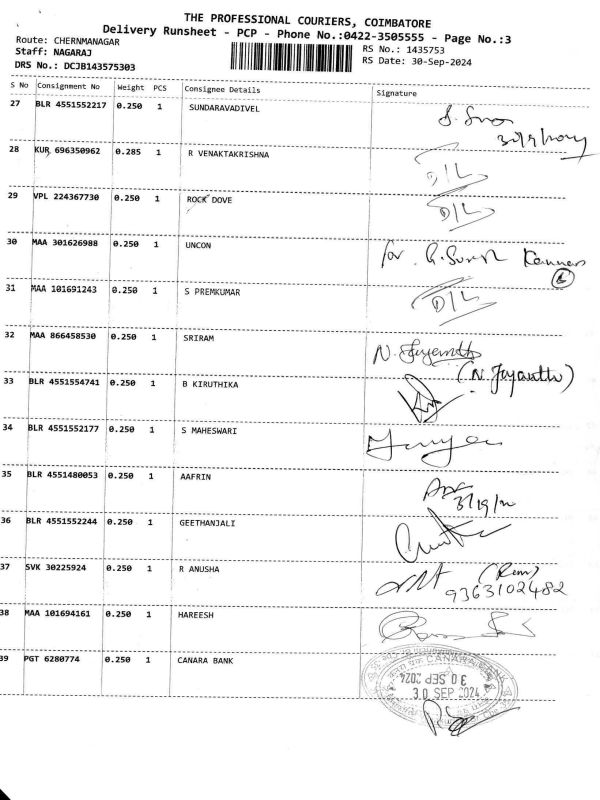 THE PROFESSIONAL COURIERS, COIMBATORE
Delivery Runsheet - PCP - Phone No.:0422-3505555 - Page No.:3
Route: CHERNMANAGAR
RS No.: 1435753
Staff: NAGARAJ
RS Date: 30-Sep-2024
DRS No.: DCJB143575303
S No Consignment No Weight PCS Consignee Details Signature
27 BLR 4551552217 0.250 1 SUNDARAVADIVEL
28 KUR 696350962 0.285 1 R VENAKTAKRISHNA D/L
29 VPL 224367730 0.250 1 ROCK DOVE D/L
30 MAA 301626988 0.250 1 UNCON for G. Suresh Kannan
31 MAA 101691243 0.250 1 S PREMKUMAR D/L
32 MAA 866458530 0.250 1 SRIRAM N. Jayanth
(N. Jayanth)
33 BLR 4551554741 0.250 1 B KIRUTHIKA
34 BLR 4551552177 0.250 1 S MAHESWARI
35 BLR 4551480053 0.250 1 AAFRIN
36 BLR 4551552244 0.250 1 GEETHANJALI
37 SVK 30225924 0.250 1 R ANUSHA
9363102482
38 MAA 101694161 0.250 1 HAREESH
39 PGT 6280774 0.250 1 CANARA BANK
CANARA BANK
30 SEP 2024
30 SEP 2024